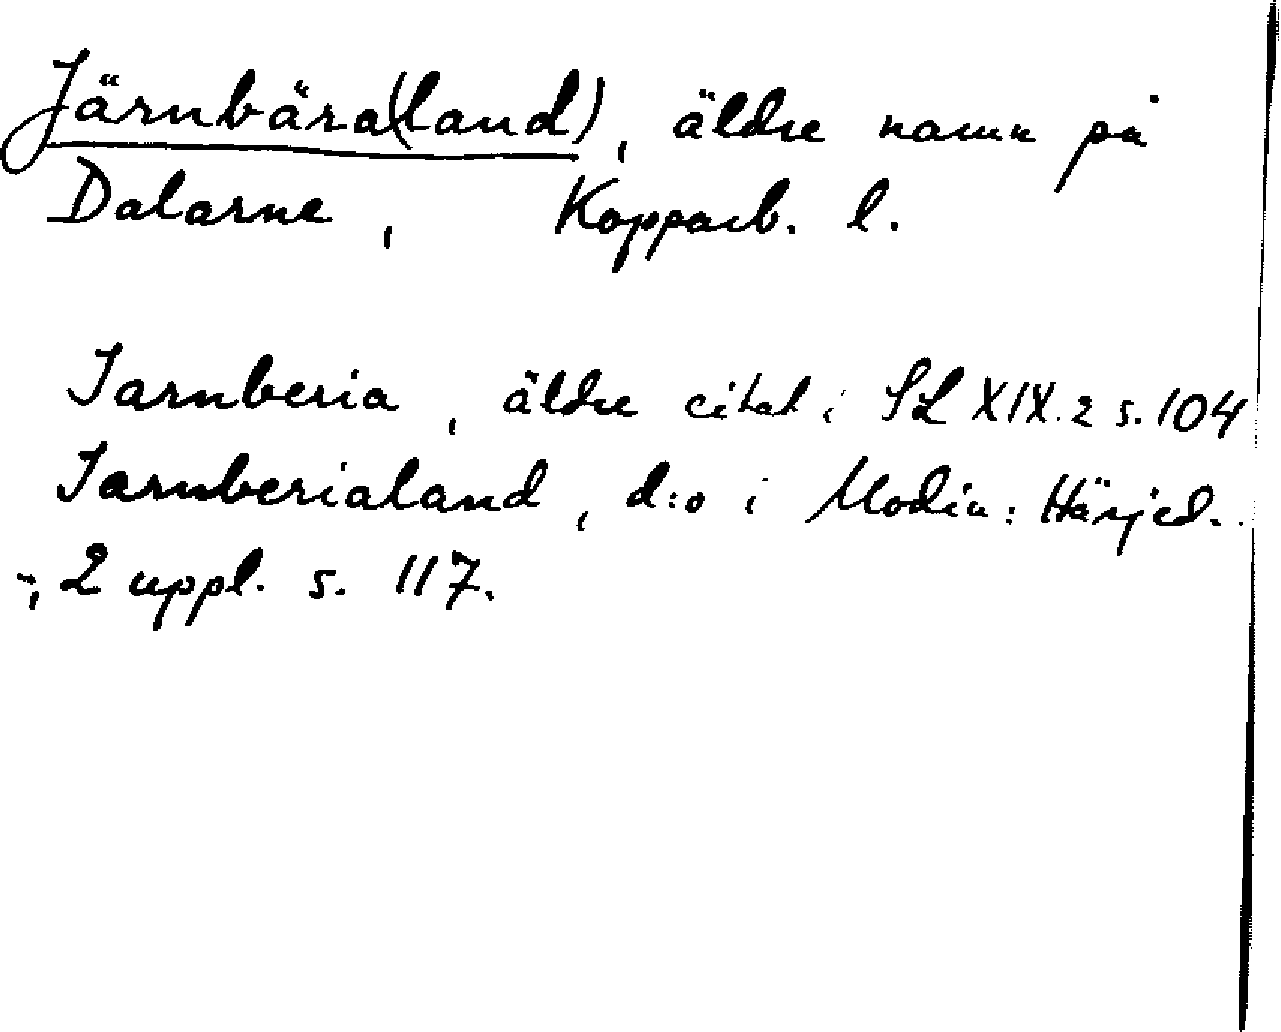 Järnbära(land), äldre namn på
Dalarne, Kopparb. l.
Jarnberia, äldre citat i SL XIX.2 s. 104
Jarnberialand, d:o i Modin: Härjed.
-, 2 uppl. s. 117.